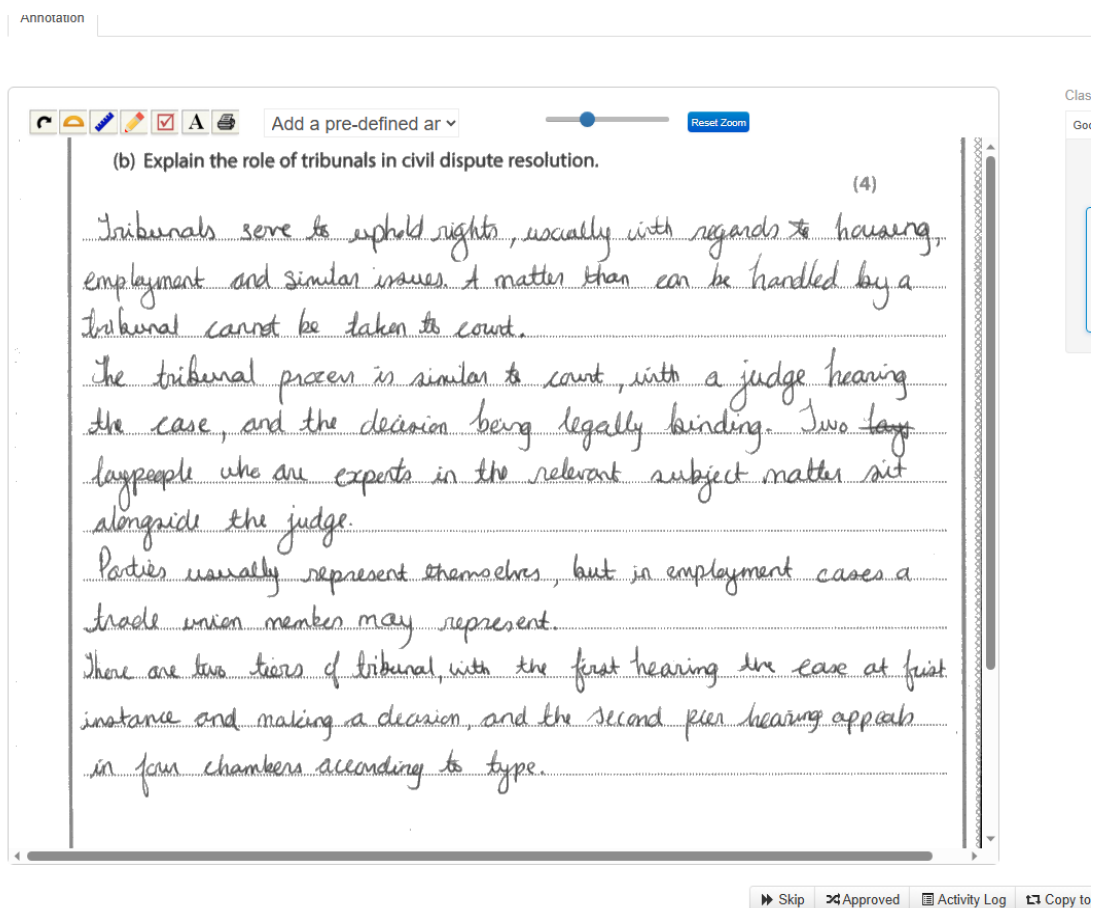 Annotation
Clas
Add a pre-defined ar
Reset Zoom
Goo
(b) Explain the role of tribunals in civil dispute resolution.
(4)
Tribunals serve to uphold rights, usually with regards to housing,
employment and similar issues. A matter than can be handled by a
tribunal cannot be taken to court.
The tribunal process is similar to court, with a judge hearing
the case, and the decision being legally binding. Two lays
laypeople who are experts in the relevant subject matter sit
alongside the judge.
Parties usually represent themselves, but in employment cases a
trade union member may represent.
There are two tiers of tribunal, with the first hearing the case at first
instance and making a decision, and the second hearing appeals
in four chambers according to type.
Skip Approved Activity Log Copy to